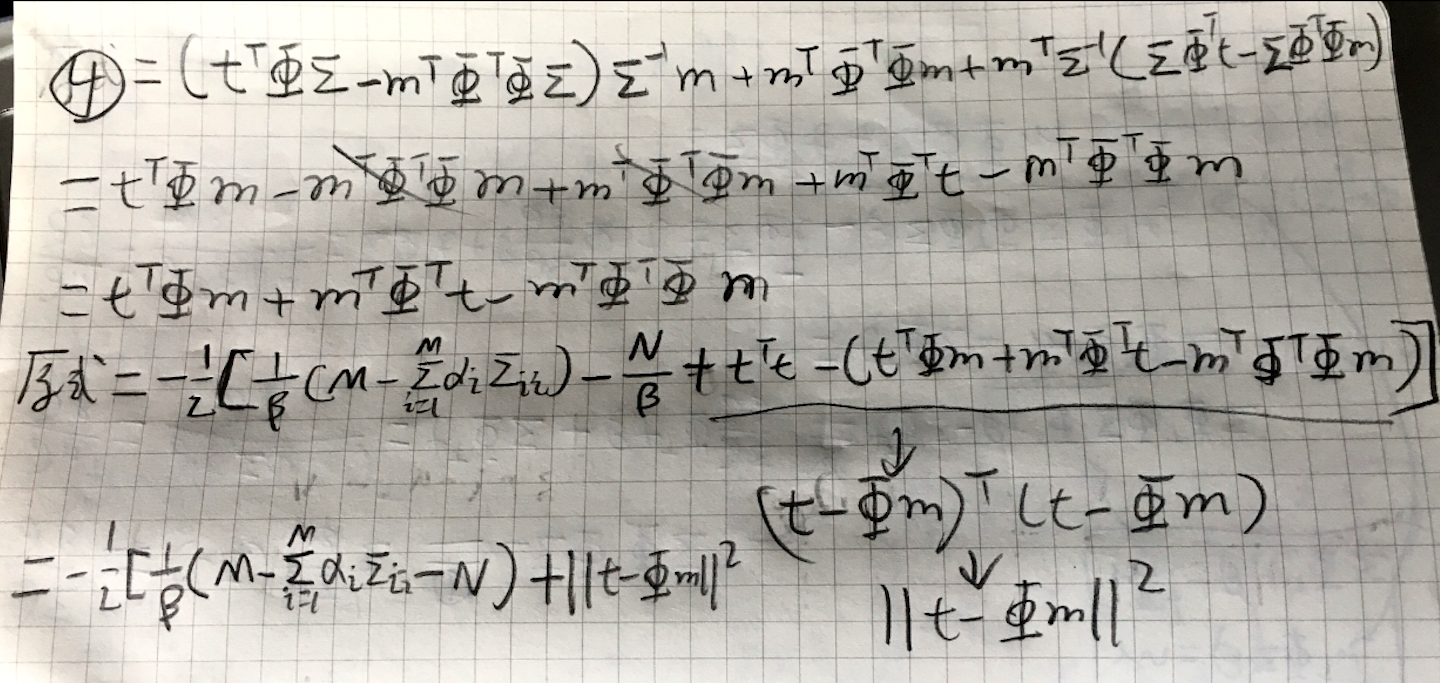 ④ = (t^TΦΣ - m^TΦ^TΦΣ)Σ^{-1}m + m^TΦ^TΦm + m^TΣ^{-1}(ΣΦ^Tt - ΣΦ^TΦm)
= t^TΦm - m^TΦ^TΦm + m^TΦ^TΦm + m^TΦ^Tt - m^TΦ^TΦm
= t^TΦm + m^TΦ^Tt - m^TΦ^TΦm
原式 = -\frac{1}{2}[\frac{1}{β}(M - \sum_{i=1}^{M} α_iΣ_{ii}) - \frac{N}{β} + t^Tt - (t^TΦm + m^TΦ^Tt - m^TΦ^TΦm)]
↓
(t - Φm)^T(t - Φm)
= -\frac{1}{2}[\frac{1}{β}(M - \sum_{i=1}^{M} α_iΣ_{ii} - N) + ||t - Φm||^2
↓
||t - Φm||^2